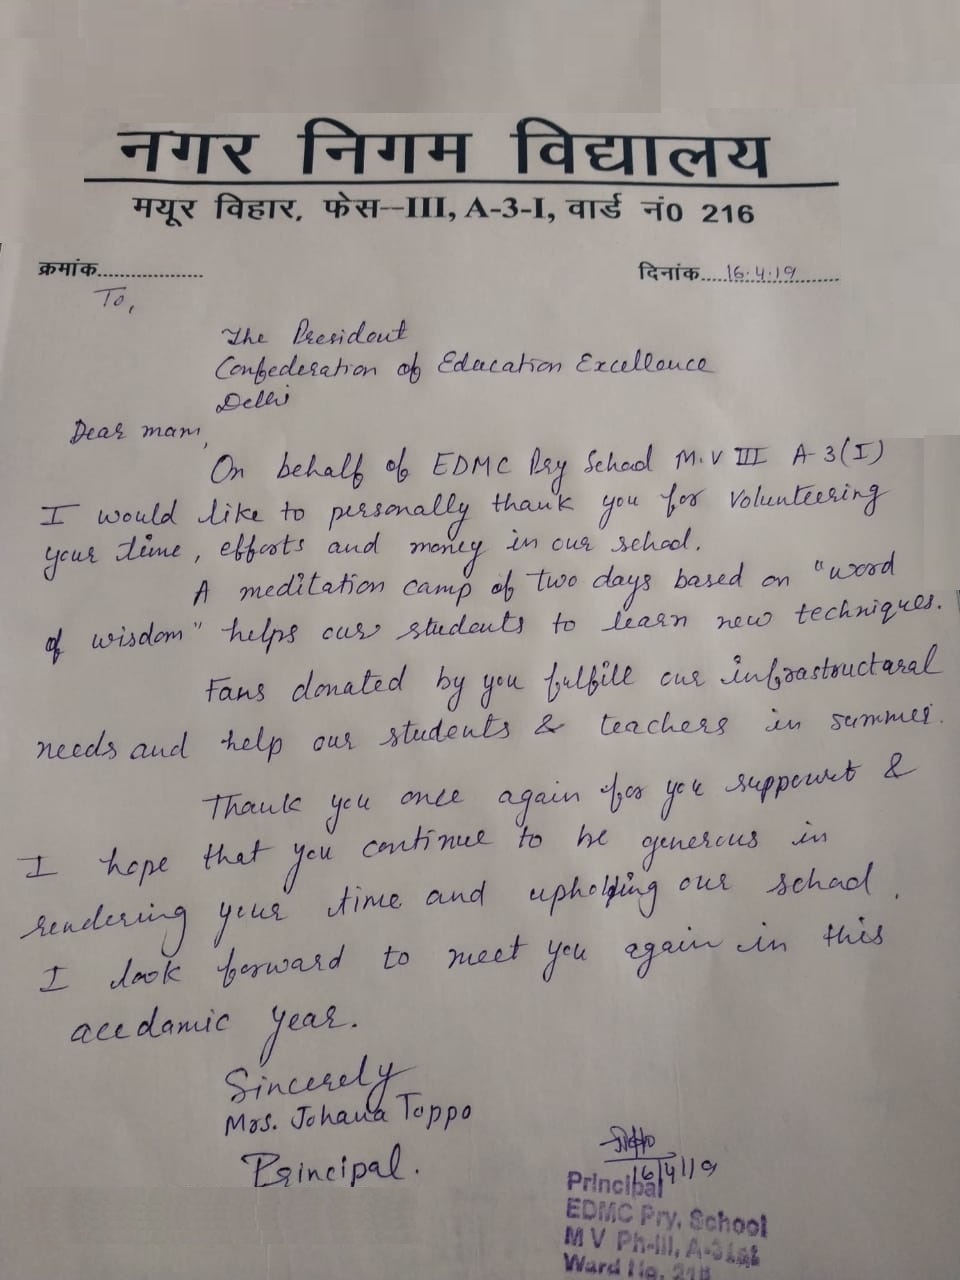 नगर निगम विद्यालय
मयूर विहार, फेस--III, A-3-I, वार्ड नं0 216
क्रमांक.................. दिनांक....16.4.19.......
To,
The President
Confederation of Education Excellence
Delhi
Dear mam,
On behalf of EDMC Pry School M.V III A-3(I)
I would like to personally thank you for volunteering
your time, efforts and money in our school.
A meditation camp of two days based on "word
of wisdom" helps our students to learn new techniques.
Fans donated by you fulfill our infrastructural
needs and help our students & teachers in summer.
Thank you once again for you support &
I hope that you continue to be generous in
rendering your time and upholding our school.
I look forward to meet you again in this
accdamic year.
Sincerely
Mrs. Johana Toppo
Principal.
16/4/19
Principal
EDMC Pry. School
M V Ph-III, A-3 Ist
Ward No. 216